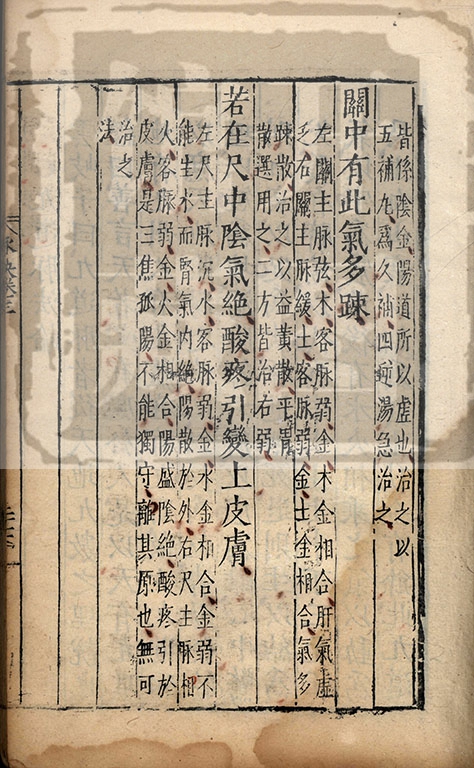 皆係陰金陽道所以虛也治之以
五補丸爲久補四逆湯急治之
關中有此氣多踈
左關主脉弦木客脉弱金木金相合肝氣虛
乏右關主脉緩土客脉弱金土金相合氣多
踈散治之以益黃散平胃
散選用之二方皆治右弱
若在尺中陰氣絶酸疼引變上皮膚
左尺主脉沉水客脉弱金水金相合金弱不
能生水而腎氣内絶陽散於外右尺主脉相
火客脉弱金火金相合陽盛陰絶酸疼引於
皮膚是三焦孤陽不能獨守離其原也無可
治之
法